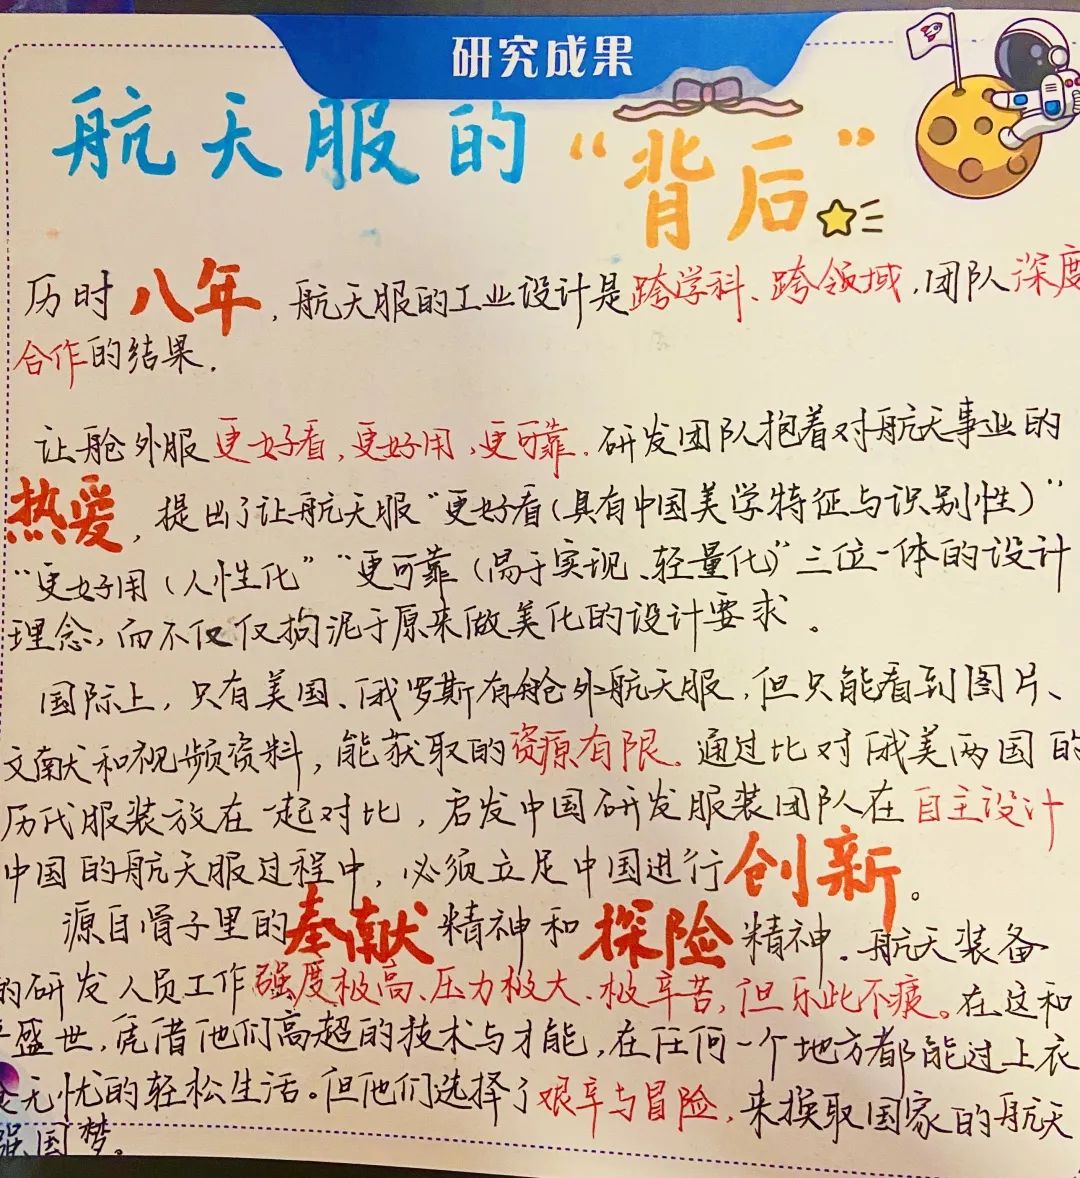 研究成果
航天服的"背后"
历时八年,航天服的工业设计是跨学科、跨领域,团队深度
合作的结果.
让舱外服更好看,更好用,更可靠.研发团队抱着对航天事业的
热爱,提出了让航天服"更好看(具有中国美学特征与识别性)"
"更好用(人性化"“更可靠(易于实现、轻量化)"三位一体的设计
理念,而不仅仅拘泥于原来做美化的设计要求。
国际上,只有美国、俄罗斯有舱外航天服,但只能看到图片、
文献和视频资料,能获取的资源有限.通过比对俄美两国的
历代服装放在一起对比,启发中国研发服装团队在自主设计
中国的航天服过程中,必须立足中国进行创新。
源自骨子里的奉献精神和探险精神.航天装备
的研发人员工作强度极高、压力极大、极辛苦,但乐此不疲。在这和
盛世,凭借他们高超的技术与才能,在任何一个地方都能过上衣
食无忧的轻松生活。但他们选择了艰辛与冒险,来换取国家的航天
强国梦。